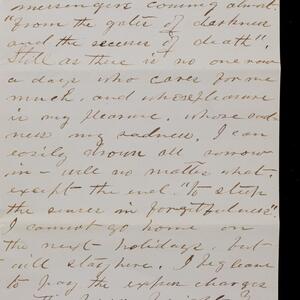 coming almost
"from the gates of darkness
and the              of death".
Still as there is no one now
a days who cares for me
much, and whose pleasure
is my pleasure, whose sad-
ness my sadness. I can
easily drown all sorrow
in – will no matter what
except the end. "to steep
the              in forgetfulness".
I cannot go home on
the next holidays. but
will stay here. I beg leave
to pay the extra charges